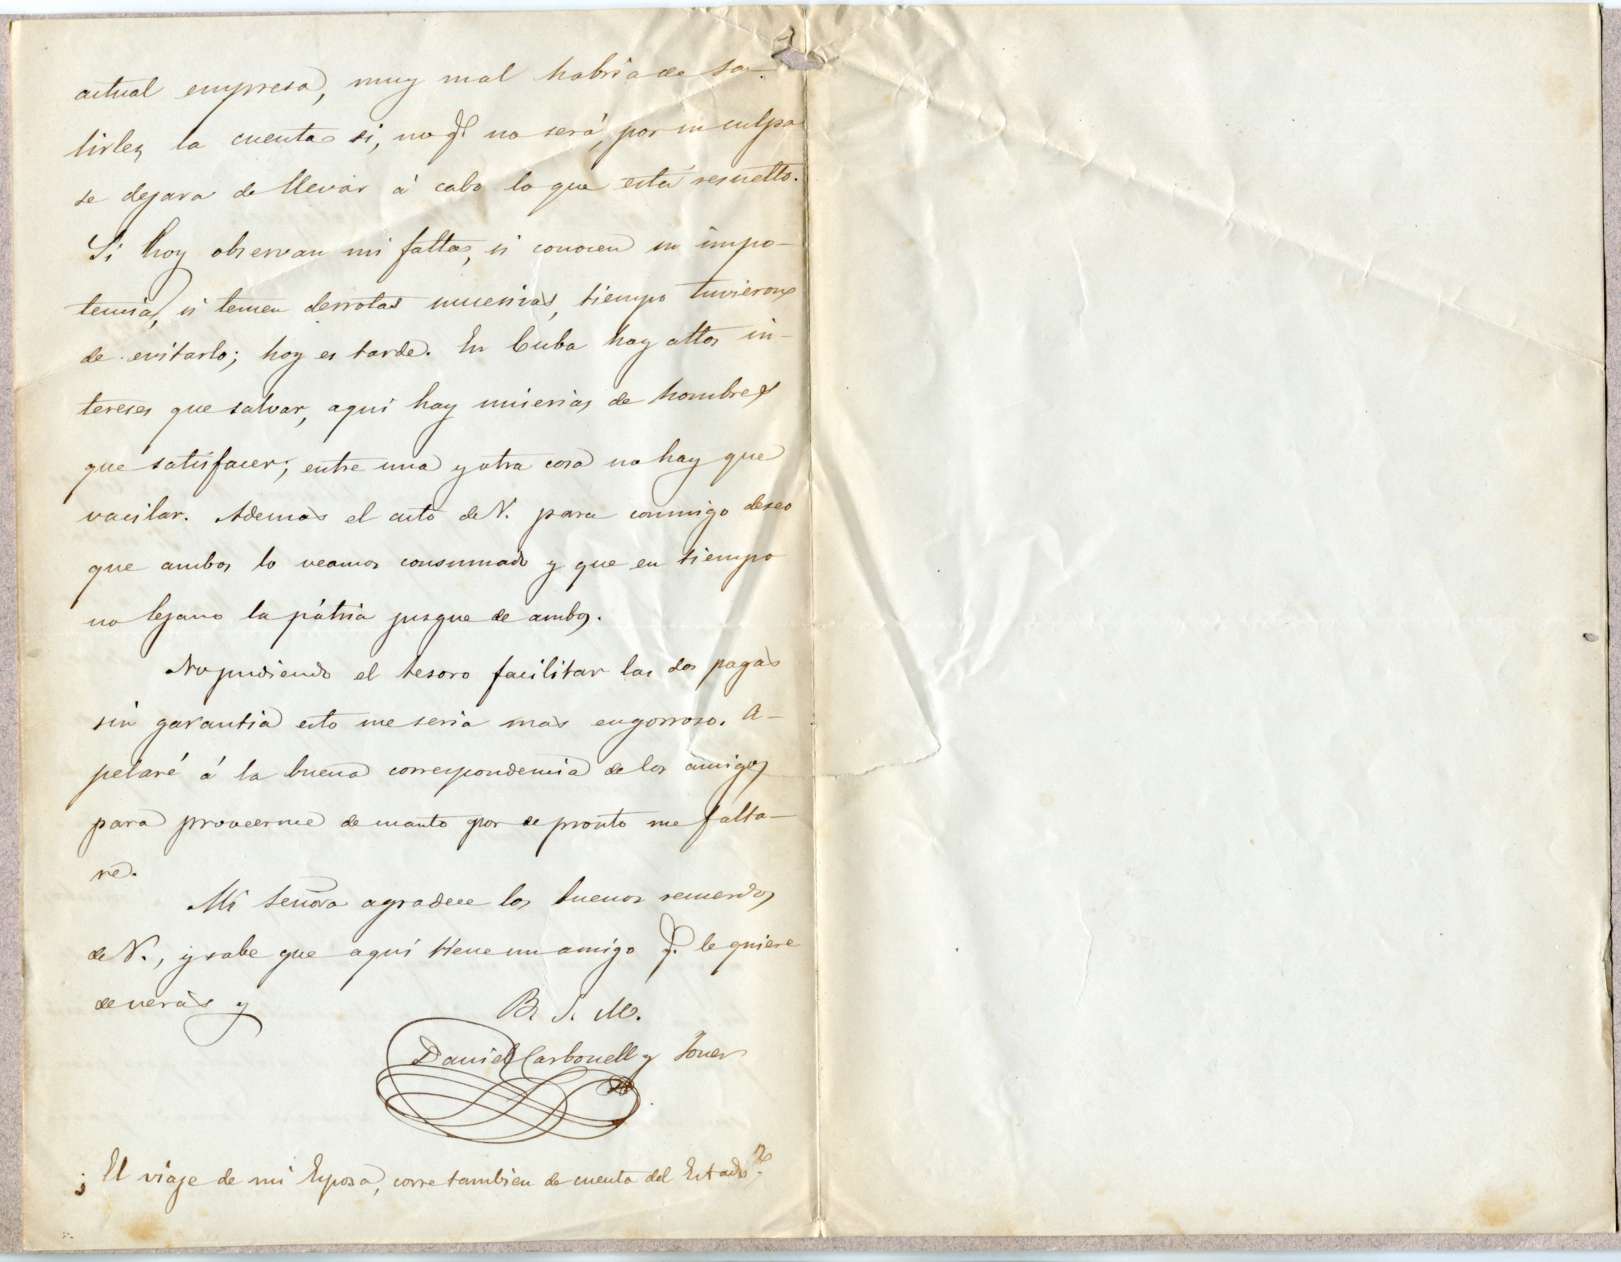 actual empresa, muy mal habria de sa-
lirles la cuenta si, no q.e no será, por su culpa
se dejara de llevar á cabo lo que está resuelto.
Si hoy observan mi falta, si conocen su impo-
tencia, si temen derrotas sucesivas, tiempo tuvieron
de evitarlo; hoy es tarde. En Cuba hay altos in-
tereses que salvar, aqui hay miserias de hombres
que satisfacer; entre una y otra cosa no hay que
vacilar. Además el acto de V. para conmigo deseo
que ambos lo veamos consumado y que en tiempo
no lejano la pátria jusgue de ambos.
No pudiendo el tesoro facilitar las dos pagas
sin garantia esto me seria mas engorroso. A-
pelaré á la buena correspondencia de los amigos
para proveerme de cuanto por de pronto me falta-
re.
Mi Señora agradece los buenos recuerdos
de V., y sabe que aquí tiene un amigo q. le quiere
de veras y
B. S. M.
Daniel Carbonell y
¿ El viaje de mi Esposa, corre tambien de cuenta del Estado?